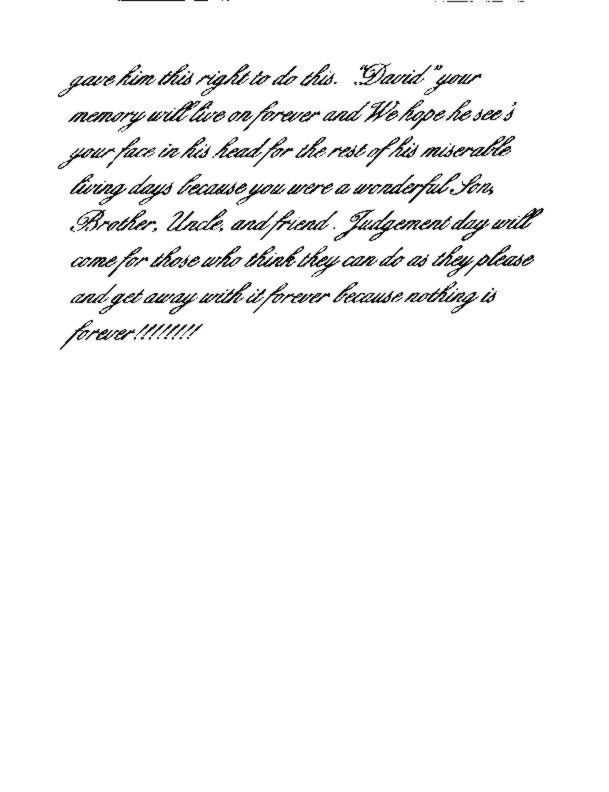 gave him this right to do this. "David" your
memory will live on forever and We hope he see's
your face in his head for the rest of his miserable
living days because you were a wonderful Son,
Brother, Uncle, and friend. Judgement day will
come for those who think they can do as they please
and get away with it forever because nothing is
forever!!!!!!!!